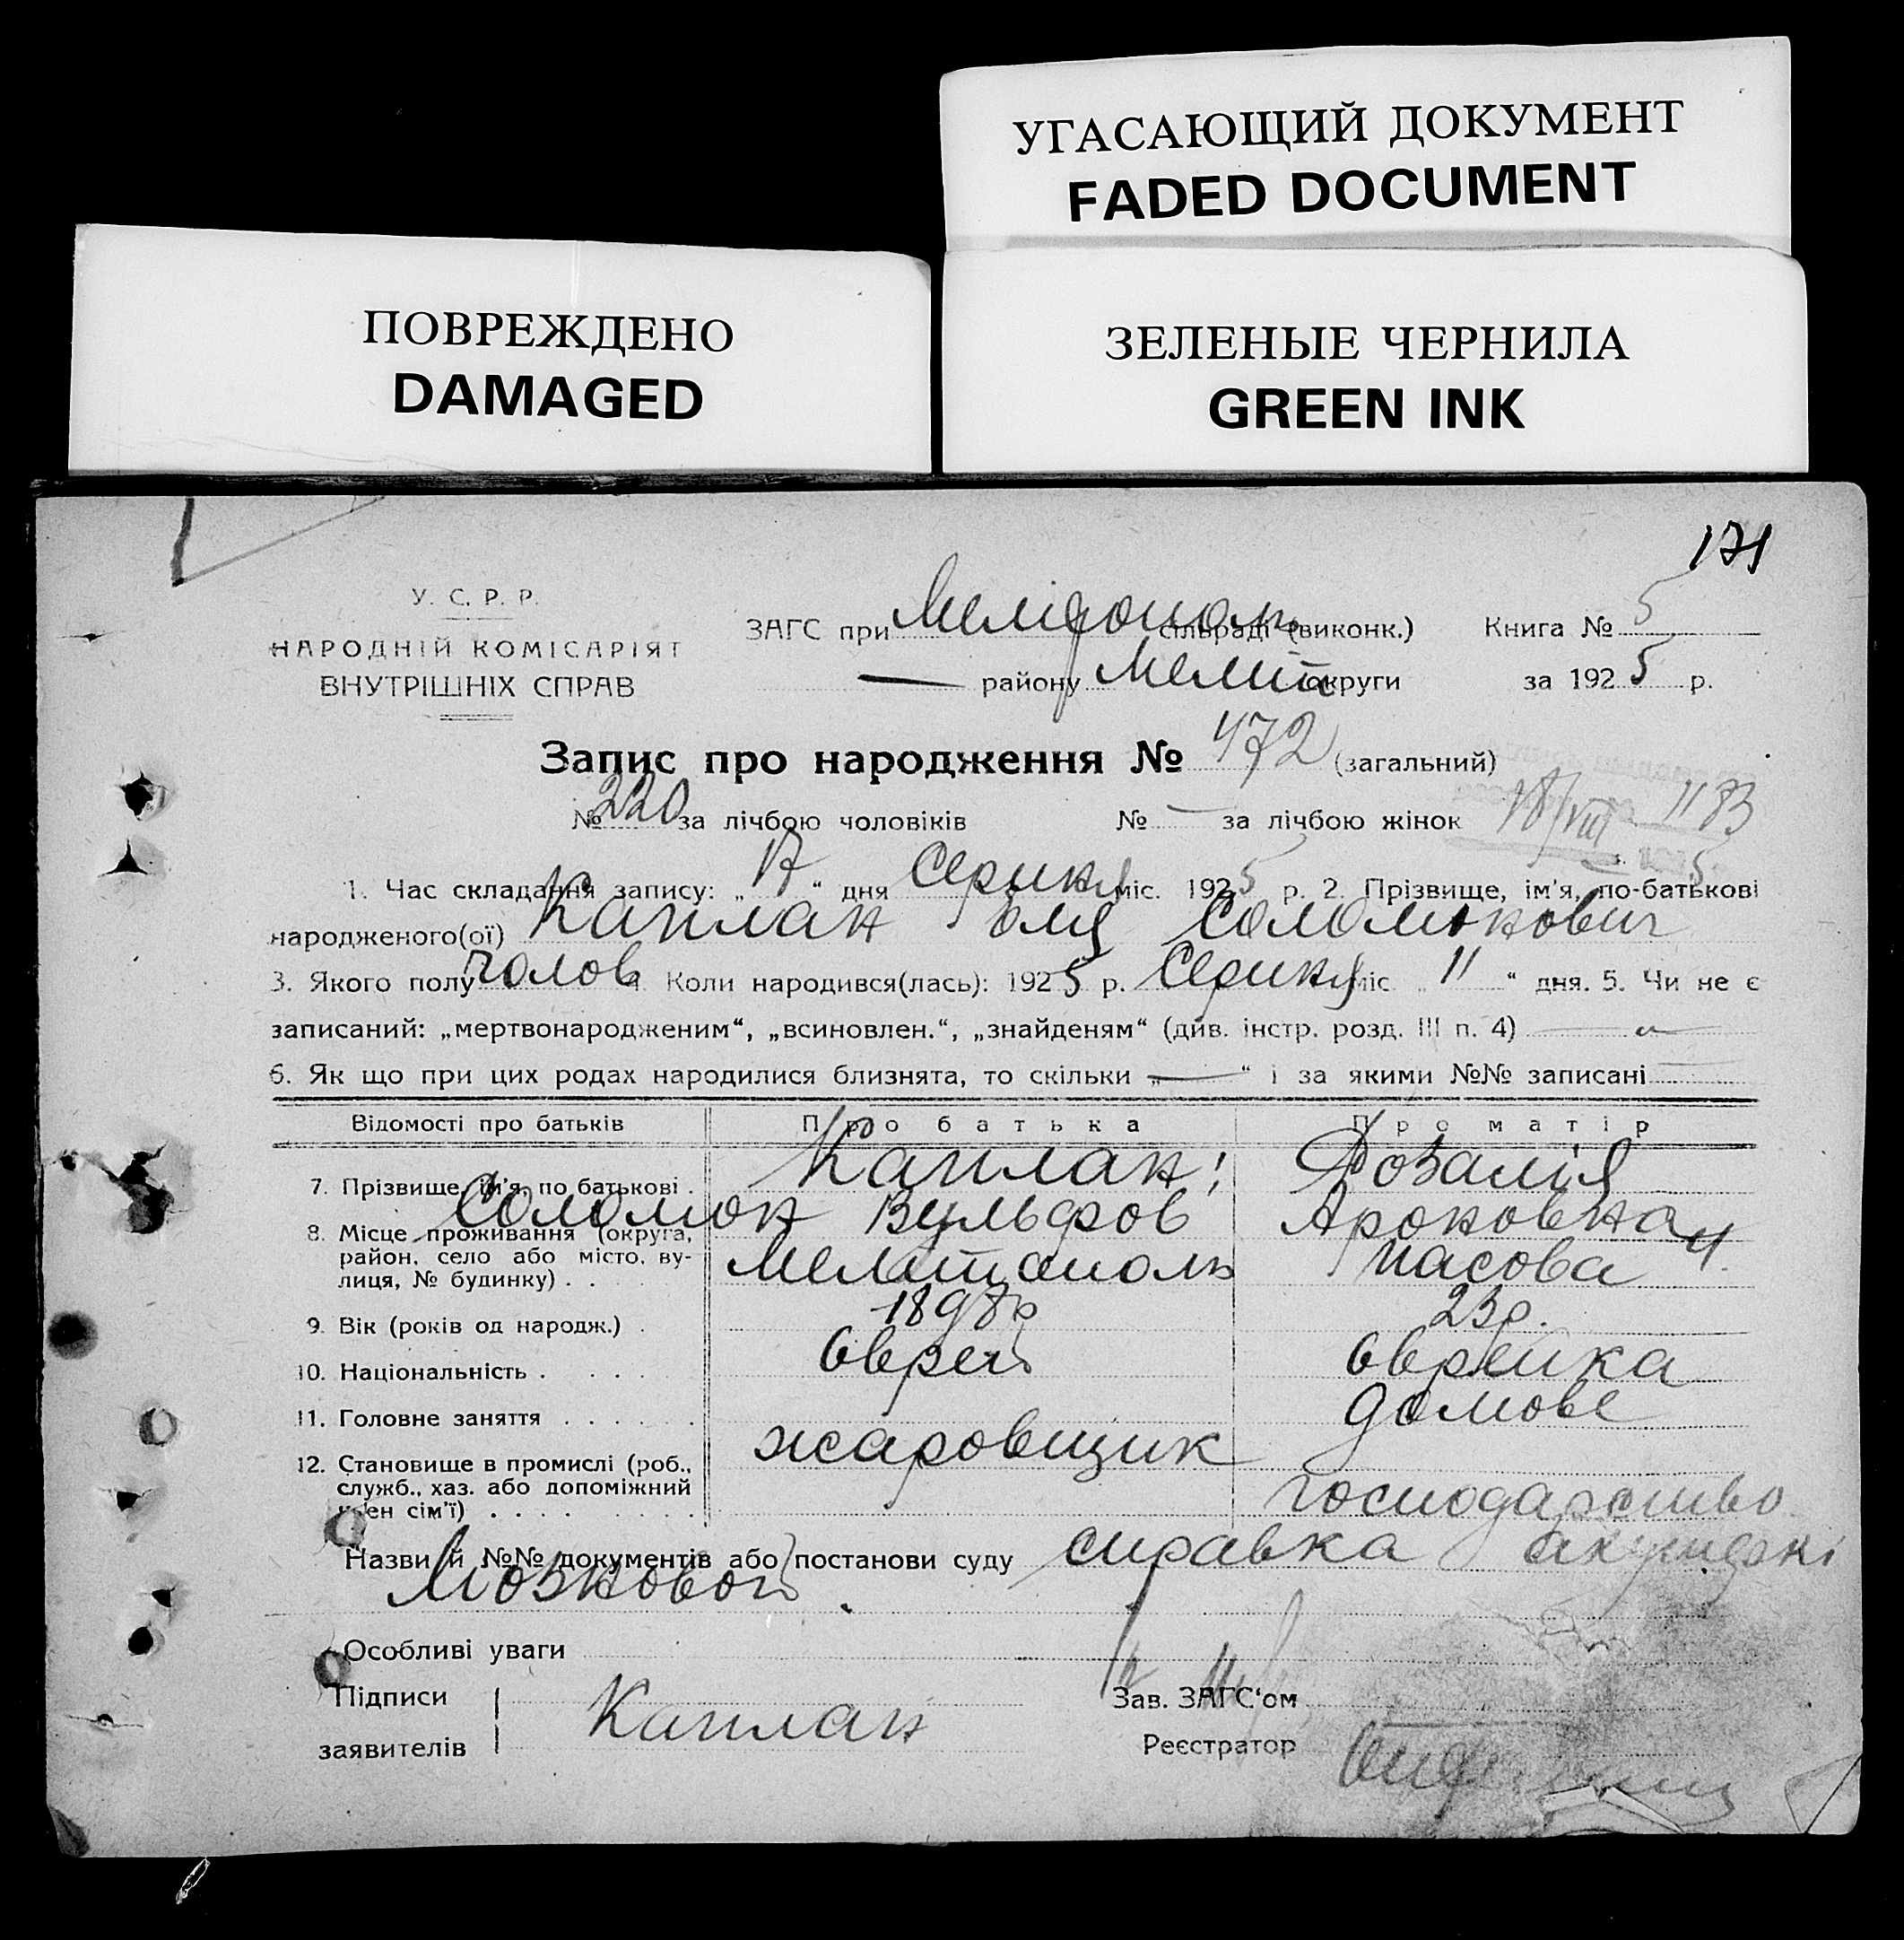 УГАСАЮЩИЙ ДОКУМЕНТ
FADED DOCUMENT
ПОВРЕЖДЕНО
DAMAGED
ЗЕЛЕНЫЕ ЧЕРНИЛА
GREEN INK
171
У. С. Р. Р.
НАРОДНІЙ КОМІСАРІЯТ
ВНУТРІШНІХ СПРАВ
ЗАГС при Мелітополь сільраді (виконк.) Книга № 5
— району Меліт округи за 1925 р.
Запис про народження № 472 (загальний)
№ 220 за лічбою чоловіків № — за лічбою жінок 18/VIII 1183
1. Час складання запису: „17“ дня Серпня міс. 1925 р. 2. Прізвище, ім'я, по-батькові
народженого(ої) Каплан Соломонович
3. Якого полу чолов 4. Коли народився(лась): 1925 р. Серпня міс. „11“ дня. 5. Чи не є
записаний: „мертвонародженим“, „всиновлен.“, „знайденям“ (див. інстр. розд. III п. 4)
6. Як що при цих родах народилися близнята, то скільки „—“ і за якими №№ записані
Відомості про батьків Про батька Про матір
7. Прізвище, ім'я, по батькові . Каплан Розалія
Соломон Вульфов Ароновна
8. Місце проживання (округа,
район, село або місто, ву-
лиця, № будинку) . . Мелітополь 4
9. Вік (років од народж.) . 1898 р 23 р.
10. Національність . . . . Єврей Єврейка
11. Головне заняття . . . . . . жаровщик домове
12. Становище в промислі (роб.,
служб., хаз. або допоміжний
член сім'ї) . . . . . . . . господарство
Назви й №№ документів або постанови суду справка акушерки
Мозковой.
Особливі уваги
Підписи
заявителів Каплан
Зав. ЗАГС'ом
Реєстратор